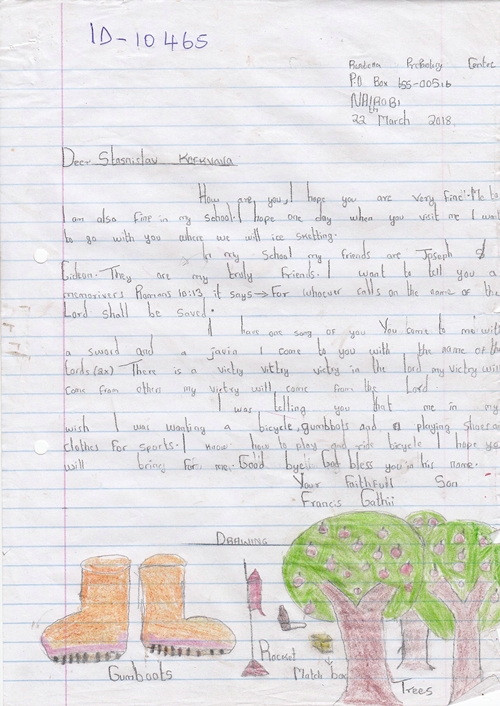 ID-10465
Centre
P.O. Box 155-00516
NAIROBI
22th March 2018.
Deer Stasnislav
How are you, I hope you are very fine. Me to
I am also fine in my school. I hope one day when you visit me I want
to go with you where we will ice skating.
In my School my friends are Joseph &
Gideon. They are my truly Friends. I want to tell you a
Romans 10:13 it says → For whoever calls on the name of the
Lord shall be Saved.
I have one song of you You come to me with
a sword and a javin I come to you with the name of the
Lords (2x) There is a victry victry victry in the lord my victry will
come from others my victry will come from the Lord
I was telling you that me in my
wish I was wanting a bicycle, gumboots and a playing shoes and
clothes for sports. I know how to play and ride bicycle I hope you
will bring for me. Good bye!! God bless you in his name.
Your Faithfull Son
Francis Gathii
DRAWING
Gumboots
Match box
Trees